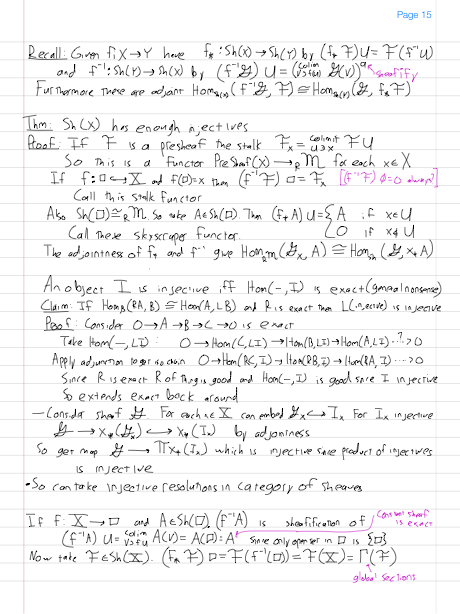 Page 15
Recall: Given f: X→Y have f_* : Sh(X)→Sh(Y) by (f_* ℱ)U = ℱ(f⁻¹U)
and f⁻¹: Sh(Y)→Sh(X) by (f⁻¹𝒢) U = (colim_{V⊃f(U)} 𝒢(V))^a sheafify
Furthermore these are adjoint Hom_{Sh(X)}(f⁻¹𝒢, ℱ) ≅ Hom_{Sh(Y)}(𝒢, f_* ℱ)
Thm: Sh(X) has enough injectives
Proof: If ℱ is a presheaf the stalk ℱ_x = colimit_{U∋x} ℱU
So this is a functor PreSheaf(X) → _Rℳ for each x∈X
If f: □↪X and f(□)=x then (f⁻¹ℱ) □ = ℱ_x [(f⁻¹ℱ) ∅=0 always?]
Call this stalk functor
Also Sh(□)≅_Rℳ. So take A∈Sh(□). Then (f_* A) U = { A if x∈U
0 if x∉U
Call these skyscraper functor.
The adjointness of f_* and f⁻¹ give Hom_{_Rℳ}(𝒢_x, A) ≅ Hom_{Sh}(𝒢, x_* A)
An object I is injective iff Hom(-, I) is exact (general nonsense)
Claim: If Hom_B(RA, B) ≅ Hom(A, LB) and R is exact then L(injective) is injective
Proof: Consider 0→A→B→C→0 is exact
Take Hom(-, LI): 0→Hom(C, LI)→Hom(B, LI)→Hom(A, LI) ⋯?> 0
Apply adjunction to get to chain 0→Hom(RC, I)→Hom(RB, I)→Hom(RA, I) ⋯> 0
Since R is exact R of thing is good and Hom(-, I) is good since I injective
So extends exact back around
— Consider sheaf 𝒢. For each x∈X can embed 𝒢_x ↪ I_x For I_x injective
𝒢 → x_*(𝒢_x) ↪ x_*(I_x) by adjointness
So get map 𝒢 → ∏x_*(I_x) which is injective since product of injectives
is injective
• So can take injective resolutions in category of sheaves
If f: X→□ and A∈Sh(□), (f⁻¹A) is sheafification of Constant sheaf is exact
(f⁻¹A) U = colim_{V⊃fU} A(V) = A(□) = A since only open set in □ is {□}
Now take ℱ∈Sh(X). (f_* ℱ) □ = ℱ(f⁻¹(□)) = ℱ(X) = Γ(ℱ)
global sections